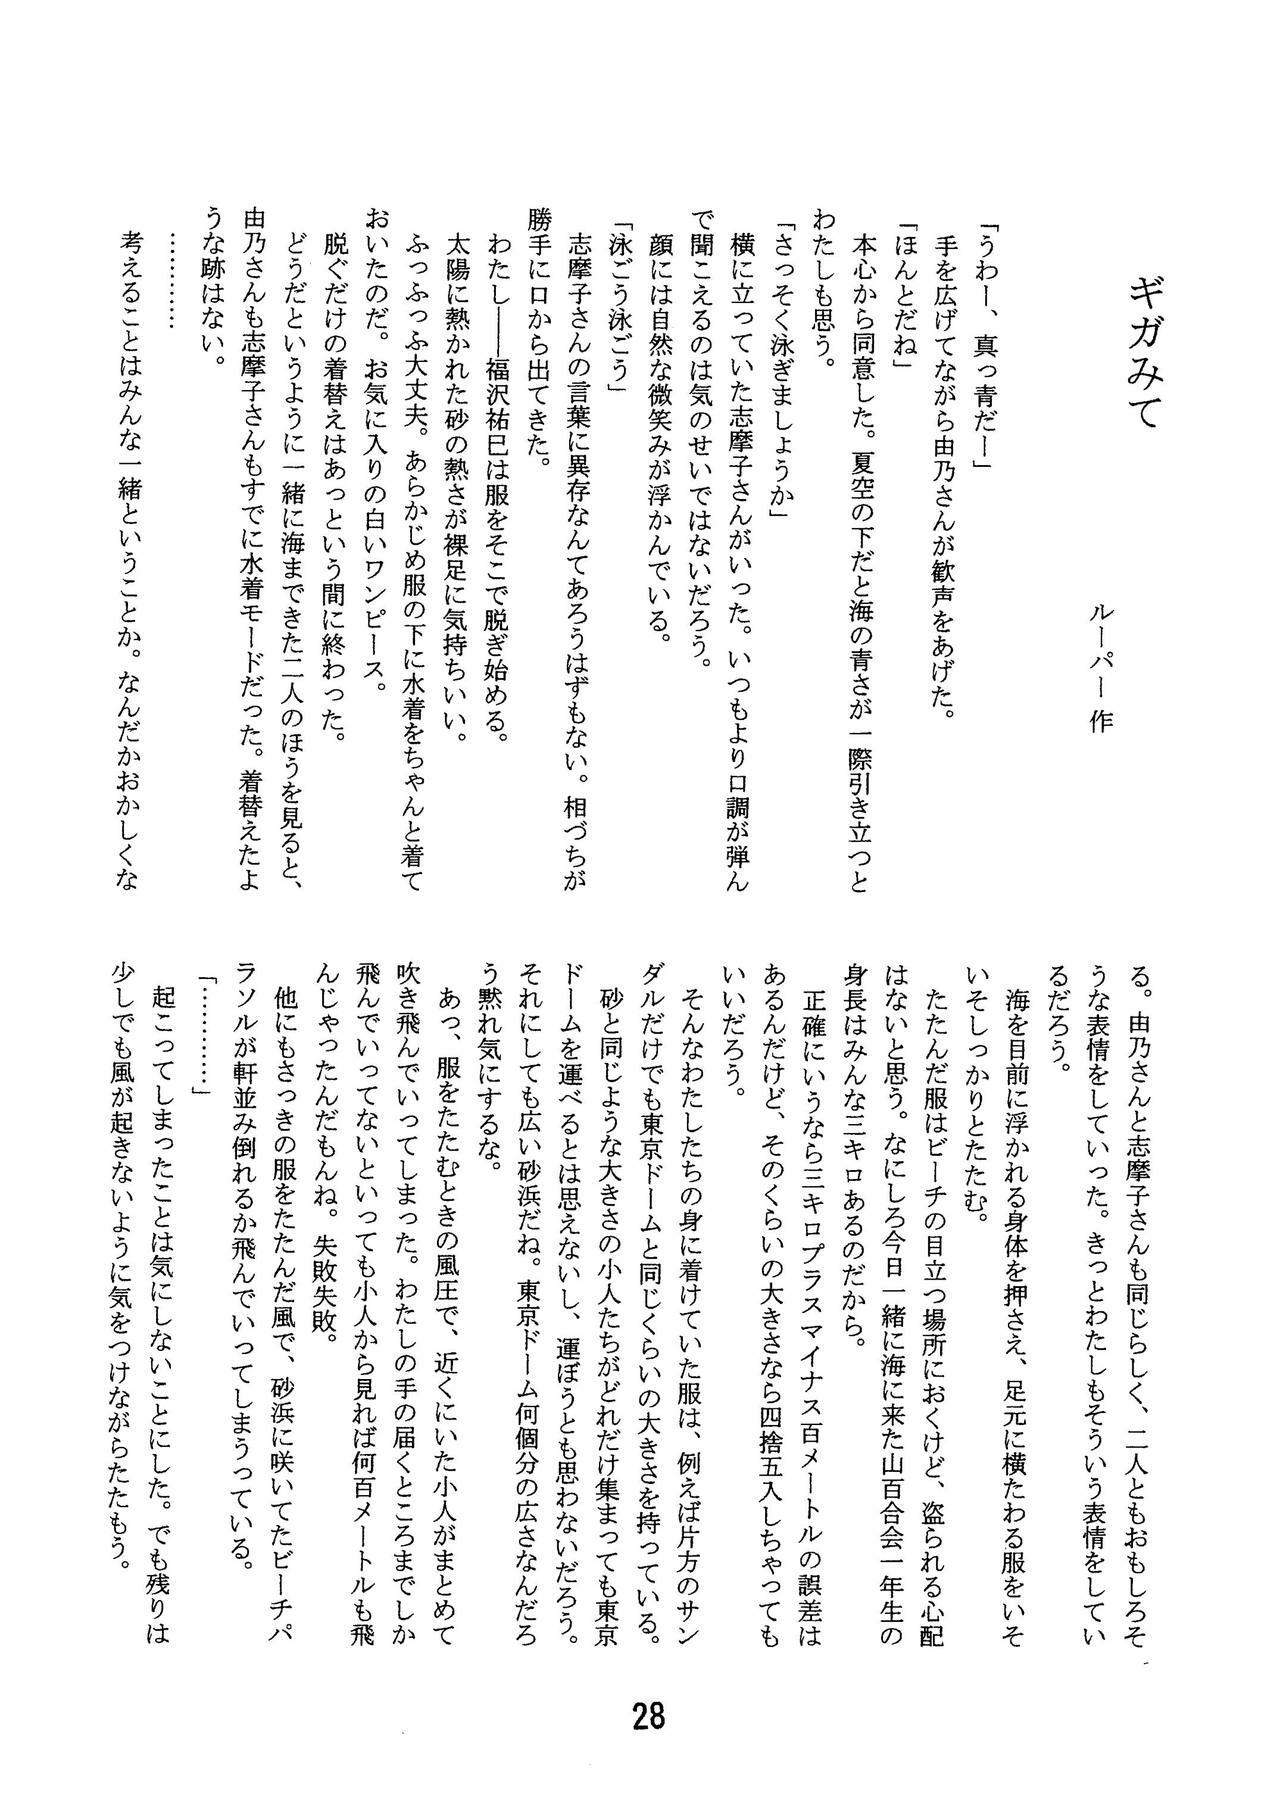 ギガみて
ルーパー 作
「うわー、真っ青だー」
手を広げてながら由乃さんが歓声をあげた。
「ほんとだね」
本心から同意した。夏空の下だと海の青さが一際引き立つと
わたしも思う。
「さっそく泳ぎましょうか」
横に立っていた志摩子さんがいった。いつもより口調が弾ん
で聞こえるのは気のせいではないだろう。
顔には自然な微笑みが浮かんでいる。
「泳ごう泳ごう」
志摩子さんの言葉に異存なんてあろうはずもない。相づちが
勝手に口から出てきた。
わたし――福沢祐巳は服をそこで脱ぎ始める。
太陽に熱かれた砂の熱さが裸足に気持ちいい。
ふっふっふ大丈夫。あらかじめ服の下に水着をちゃんと着て
おいたのだ。お気に入りの白いワンピース。
脱ぐだけの着替えはあっという間に終わった。
どうだというように一緒に海まできた二人のほうを見ると、
由乃さんも志摩子さんもすでに水着モードだった。着替えたよ
うな跡はない。
…………
考えることはみんな一緒ということか。なんだかおかしくな
る。由乃さんと志摩子さんも同じらしく、二人ともおもしろそ
うな表情をしていった。きっとわたしもそういう表情をしてい
るだろう。
海を目前に浮かれる身体を押さえ、足元に横たわる服をいそ
いそしっかりとたたむ。
たたんだ服はビーチの目立つ場所におくけど、盗られる心配
はないと思う。なにしろ今日一緒に海に来た山百合会一年生の
身長はみんな三キロあるのだから。
正確にいうなら三キロプラスマイナス百メートルの誤差は
あるんだけど、そのくらいの大きさなら四捨五入しちゃっても
いいだろう。
そんなわたしたちの身に着けていた服は、例えば片方のサン
ダルだけでも東京ドームと同じくらいの大きさを持っている。
砂と同じような大きさの小人たちがどれだけ集まっても東京
ドームを運べるとは思えないし、運ぼうとも思わないだろう。
それにしても広い砂浜だね。東京ドーム何個分の広さなんだろ
う黙れ気にするな。
あっ、服をたたむときの風圧で、近くにいた小人がまとめて
吹き飛んでいってしまった。わたしの手の届くところまでしか
飛んでいってないといっても小人から見れば何百メートルも飛
んじゃったんだもんね。失敗失敗。
他にもさっきの服をたたんだ風で、砂浜に咲いてたビーチパ
ラソルが軒並み倒れるか飛んでいってしまうっている。
「…………」
起こってしまったことは気にしないことにした。でも残りは
少しでも風が起きないように気をつけながらたたもう。
28